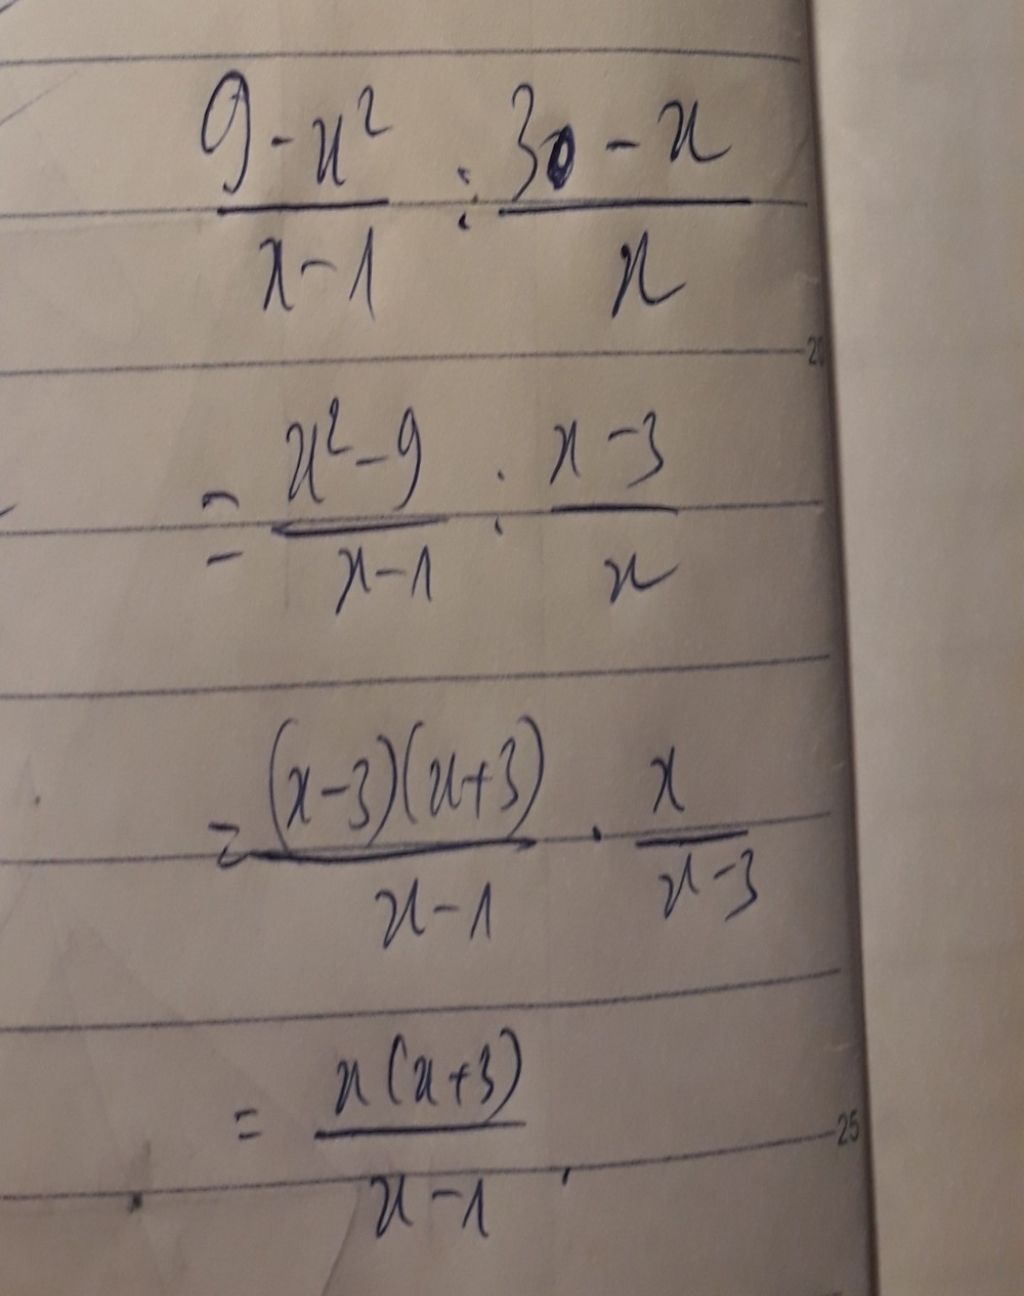 (9-x²)/(x-1) : (30-x)/x
20
= (x²-9)/(x-1) : (x-3)/x
= ((x-3)(x+3))/(x-1) · x/(x-3)
= (x(x+3))/(x-1) .
25